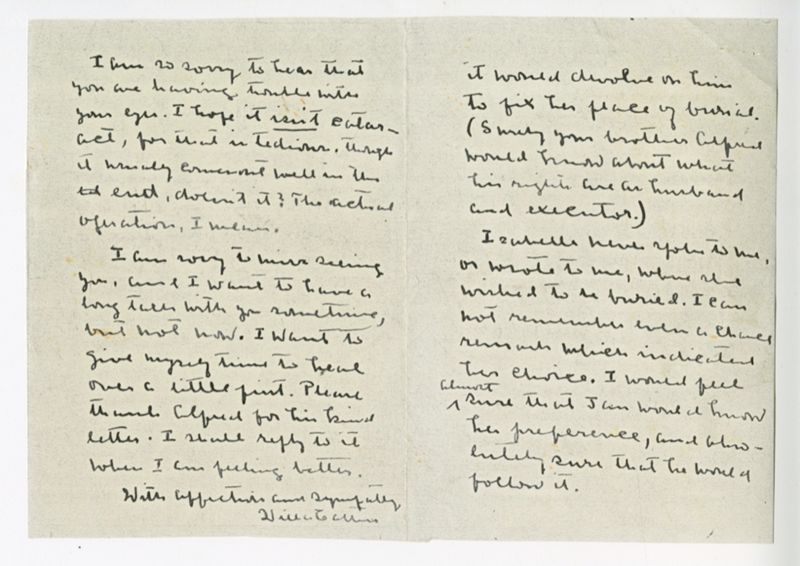 I am so sorry to hear that
you are having trouble with
your eyes. I hope it isn't catar-
act, for that is tedious, though
it usually comes out well in the
end, doesn't it? The actual
operation, I mean.
I am sorry to miss seeing
you, and I want to have a
long talk with you sometime,
but not now. I want to
give myself time to heal
over a little first. Please
thank Alfred for his kind
letter. I shall reply to it
when I am feeling better.
With affection and sympathy
Willa Cather
it would devolve on him
to fix her place of burial.
(Surely your brother Alfred
would know about what
his rights are as husband
and executor.)
Isabelle never spoke to me,
or wrote to me, where she
wished to be buried. I can
not remember even a chance
remark which indicated
her choice. I would feel
almost sure that Jan would know
her preference, and abso-
lutely sure that he would
follow it.